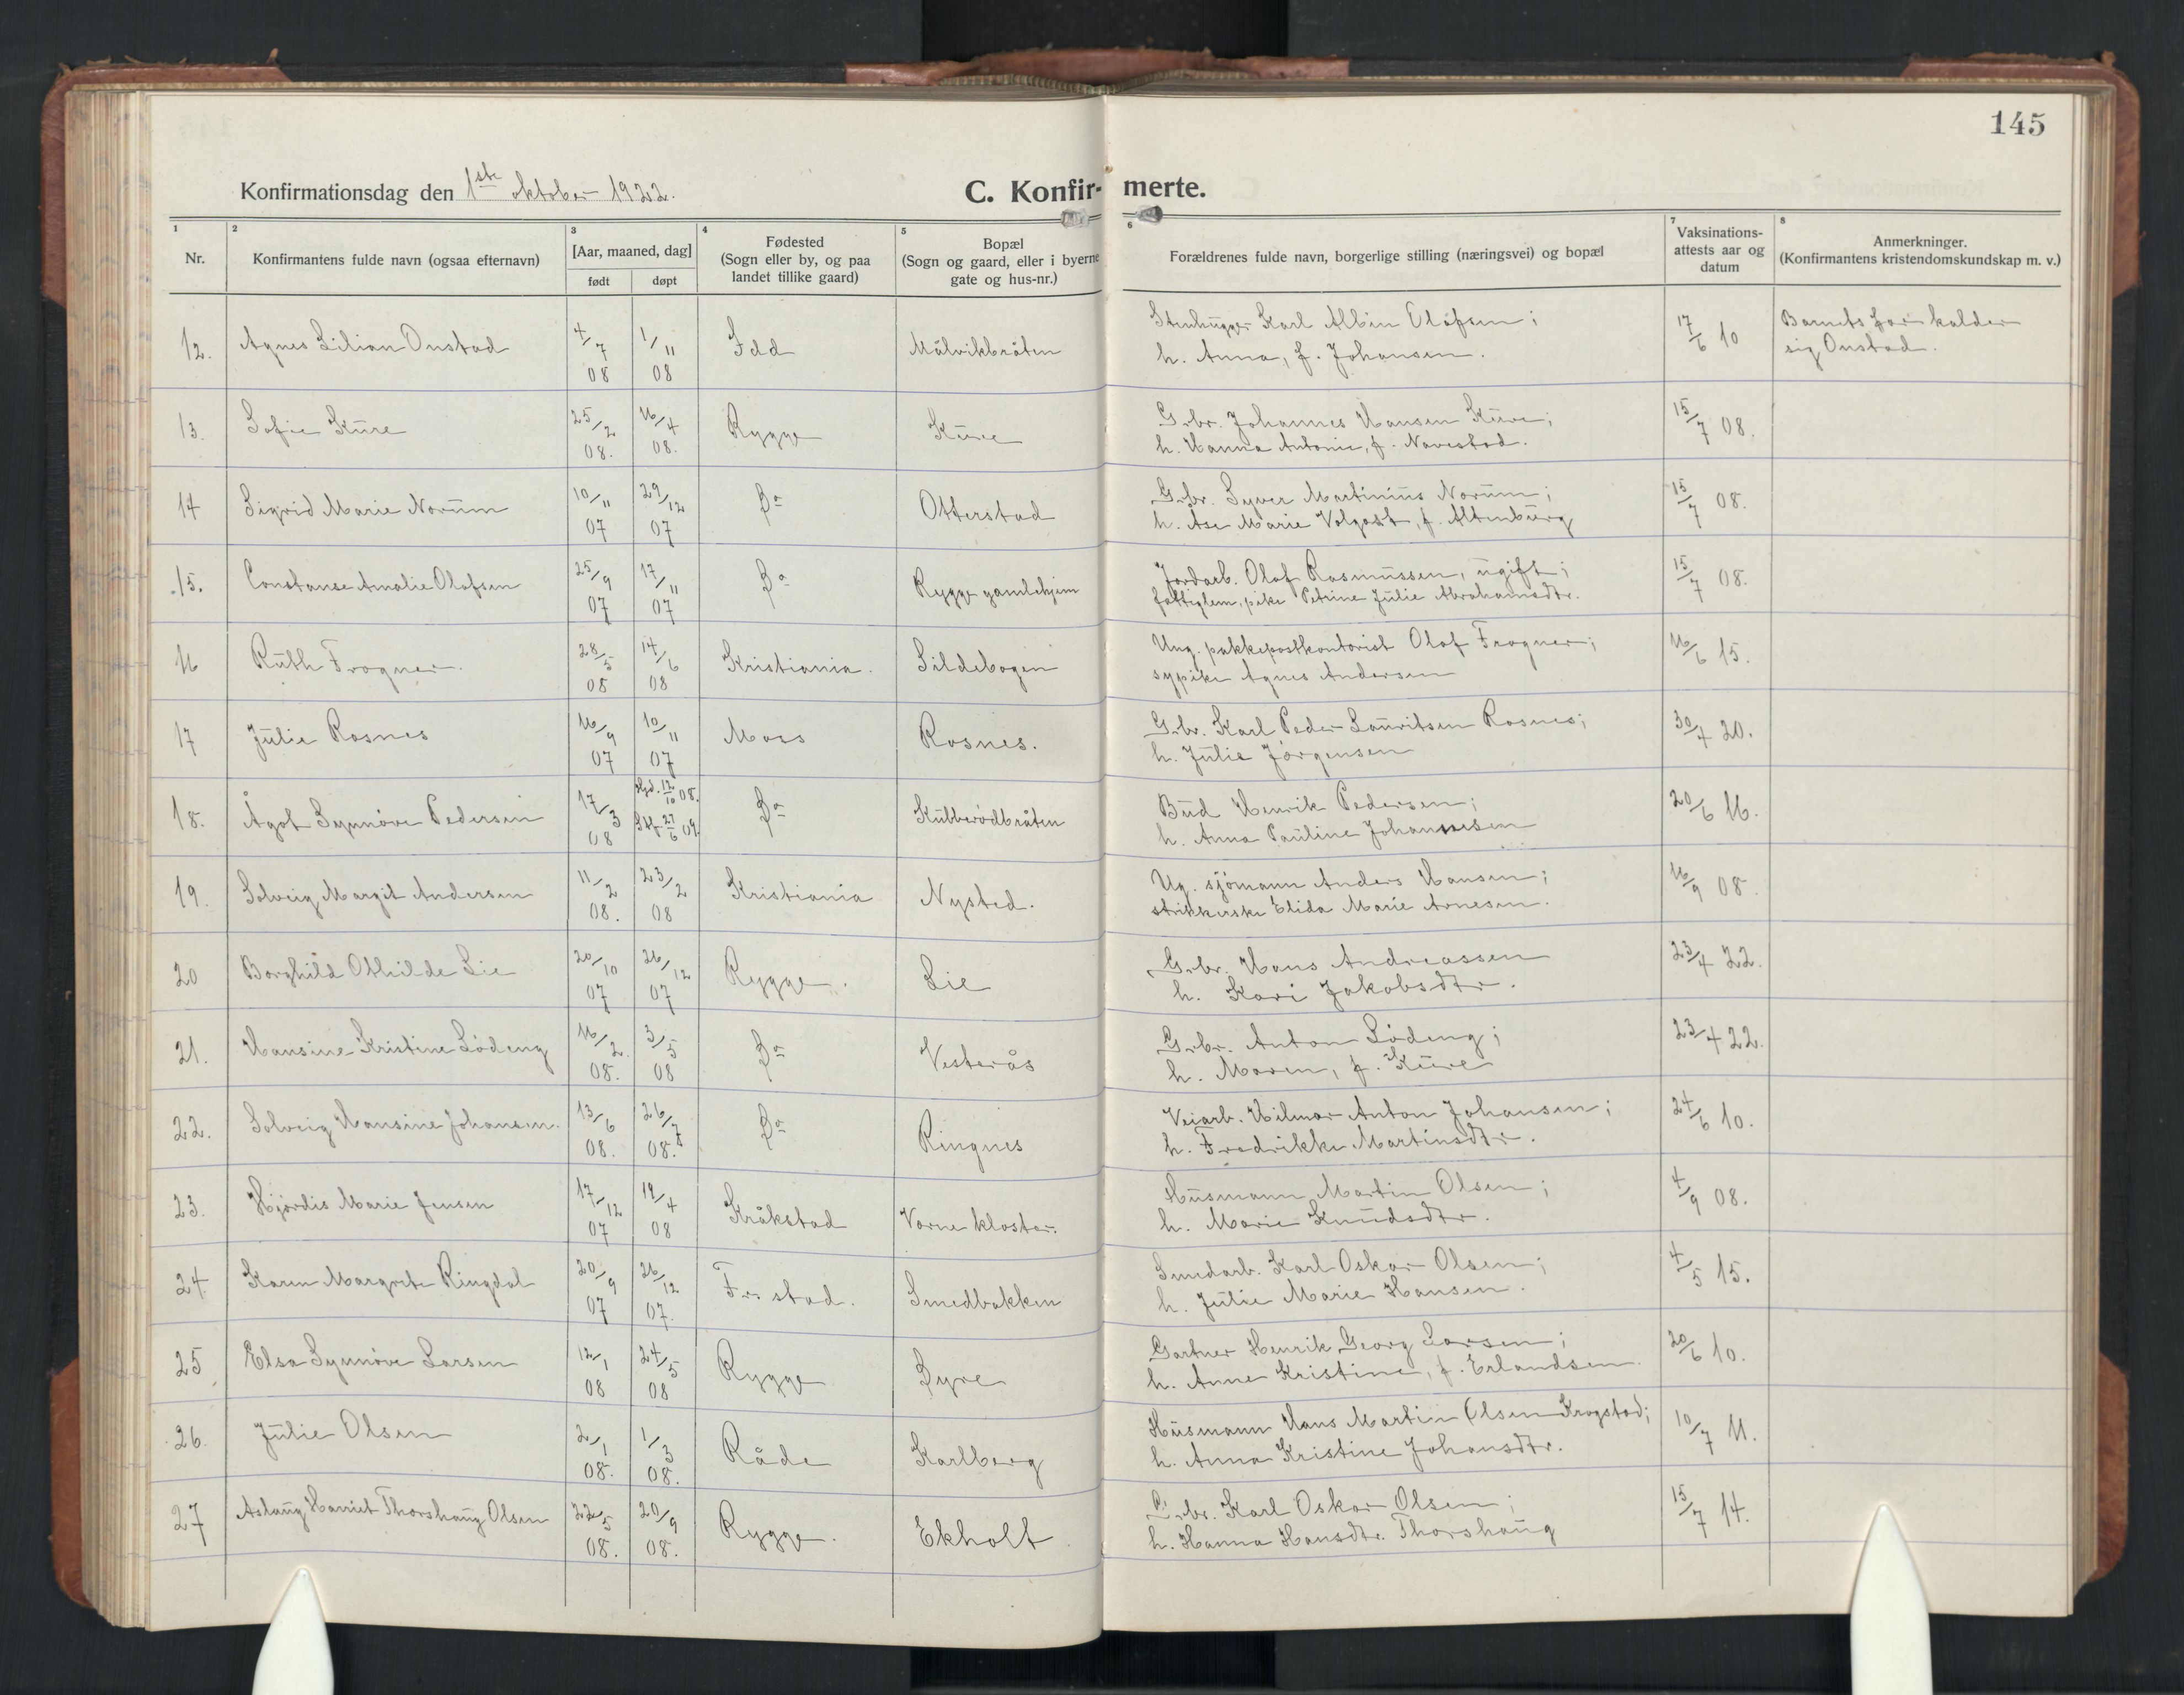 145
Konfirmationsdag den 1ste oktober 1922. C. Konfir- merte.
1 2 3 4 5 6 7 8
Nr. Konfirmantens fulde navn (ogsaa efternavn) [Aar, maaned, dag] født døpt Fødested (Sogn eller by, og paa landet tillike gaard) Bopæl (Sogn og gaard, eller i byerne gate og hus-nr.) Forældrenes fulde navn, borgerlige stilling (næringsvei) og bopæl Vaksinations-attests aar og datum Anmerkninger. (Konfirmantens kristendomskundskap m. v.)
12. Agnes Lilian Onstad 4/7 08 1/11 08 Idd Målvikbråten Stenhugger Karl Albin Olafsen; 17/6 10 Barnets far kalder
h. Anna, f. Johansen. sig Onstad.
13. Sofie Kure 25/2 08. 16/4 08. Rygge Kure Grbr. Johannes Hansen Kure; 15/7 08.
h. Hanna Antonie, f. Navestad.
14 Sigrid Marie Norum 10/11 07 29/12 07 Do Otterstad Grbr. Syver Martinius Norum; 15/7 08.
h. Åse Marie Volgast, f. Altenburg
15. Constanse Amalie Olafsen 25/9 07 17/11 07 Do Rygge gamlehjem Jordarb. Olaf Rasmussen, ugift; 15/7 08.
fattiglem, pike Petrine Julie Abrahamsdtr.
16 Ruth Frogner. 28/5 08 14/6 08 Kristiania. Sildebogen Ung. pakkepostkontorist Olaf Frogner; 16/6 15.
sypike Agnes Andersen
17 Julie Rosnes 16/9 07 10/11 07 Moss Rosnes. Grbr. Karl Peder Lauritsen Rosnes; 30/4 20.
h. Julie Jørgensen
18. Ågot Synnøve Pedersen 17/3 08 Hjd. 12/10 08. Stf. 27/6 09. Do Kubberødbråten Bud Henrik Pedersen; 20/6 16.
h. Anna Pauline Johannesen
19. Solveig Margit Andersen 11/2 08. 23/2 08 Kristiania Nysted. Ug. sjømann Anders Hansen; 16/9 08.
strikkerske Elida Marie Arnesen.
20 Borghild Othilde Lie 20/10 07 26/12 07 Rygge. Lie Grbr. Hans Andreassen 23/4 22.
h. Kari Jakobsdtr.
21. Hansine Kristine Lødeng 16/2. 08. 3/5 08 Do Vesterås Grbr. Anton Lødeng; 23/4 22.
h. Maren, f. Kure
22. Solveig Hansine Johansen. 13/6 08. 26/7 08. Do Ringnes Veiarb. Hilmar Anton Johansen; 24/6 10.
h. Fredrikke Martinsdtr.
23. Hjørdis Marie Jensen 17/12 07 19/4 08 Kråkstad Varne kloster. Husmann Martin Olsen; 4/9 08.
h. Marie Knudsdtr.
24. Karen Margrete Ringdal 20/9 07 26/12 07. Fr. stad. Smedbakken Smedarb. Karl Oskar Olsen; 4/5 15.
h. Julie Marie Hansen.
25 Elsa Synnøve Larsen 12/1 08 24/5 08 Rygge Dyre Gartner Henrik Georg Larsen; 20/6 10.
h. Anne Kristine, f. Erlandsen.
26. Julie Olsen 2/1 08. 1/3 08. Råde Karlberg Husmann Hans Martin Olsen Krogstad; 10/7 11.
h. Anna Kristine Johansdtr.
27 Aslaug Harriet Thorshaug Olsen 22/5 08. 20/9 08. Rygge. Ekholt Grbr. Karl Oskar Olsen; 15/7 14.
h. Hanna Hansdtr. Thorshaug